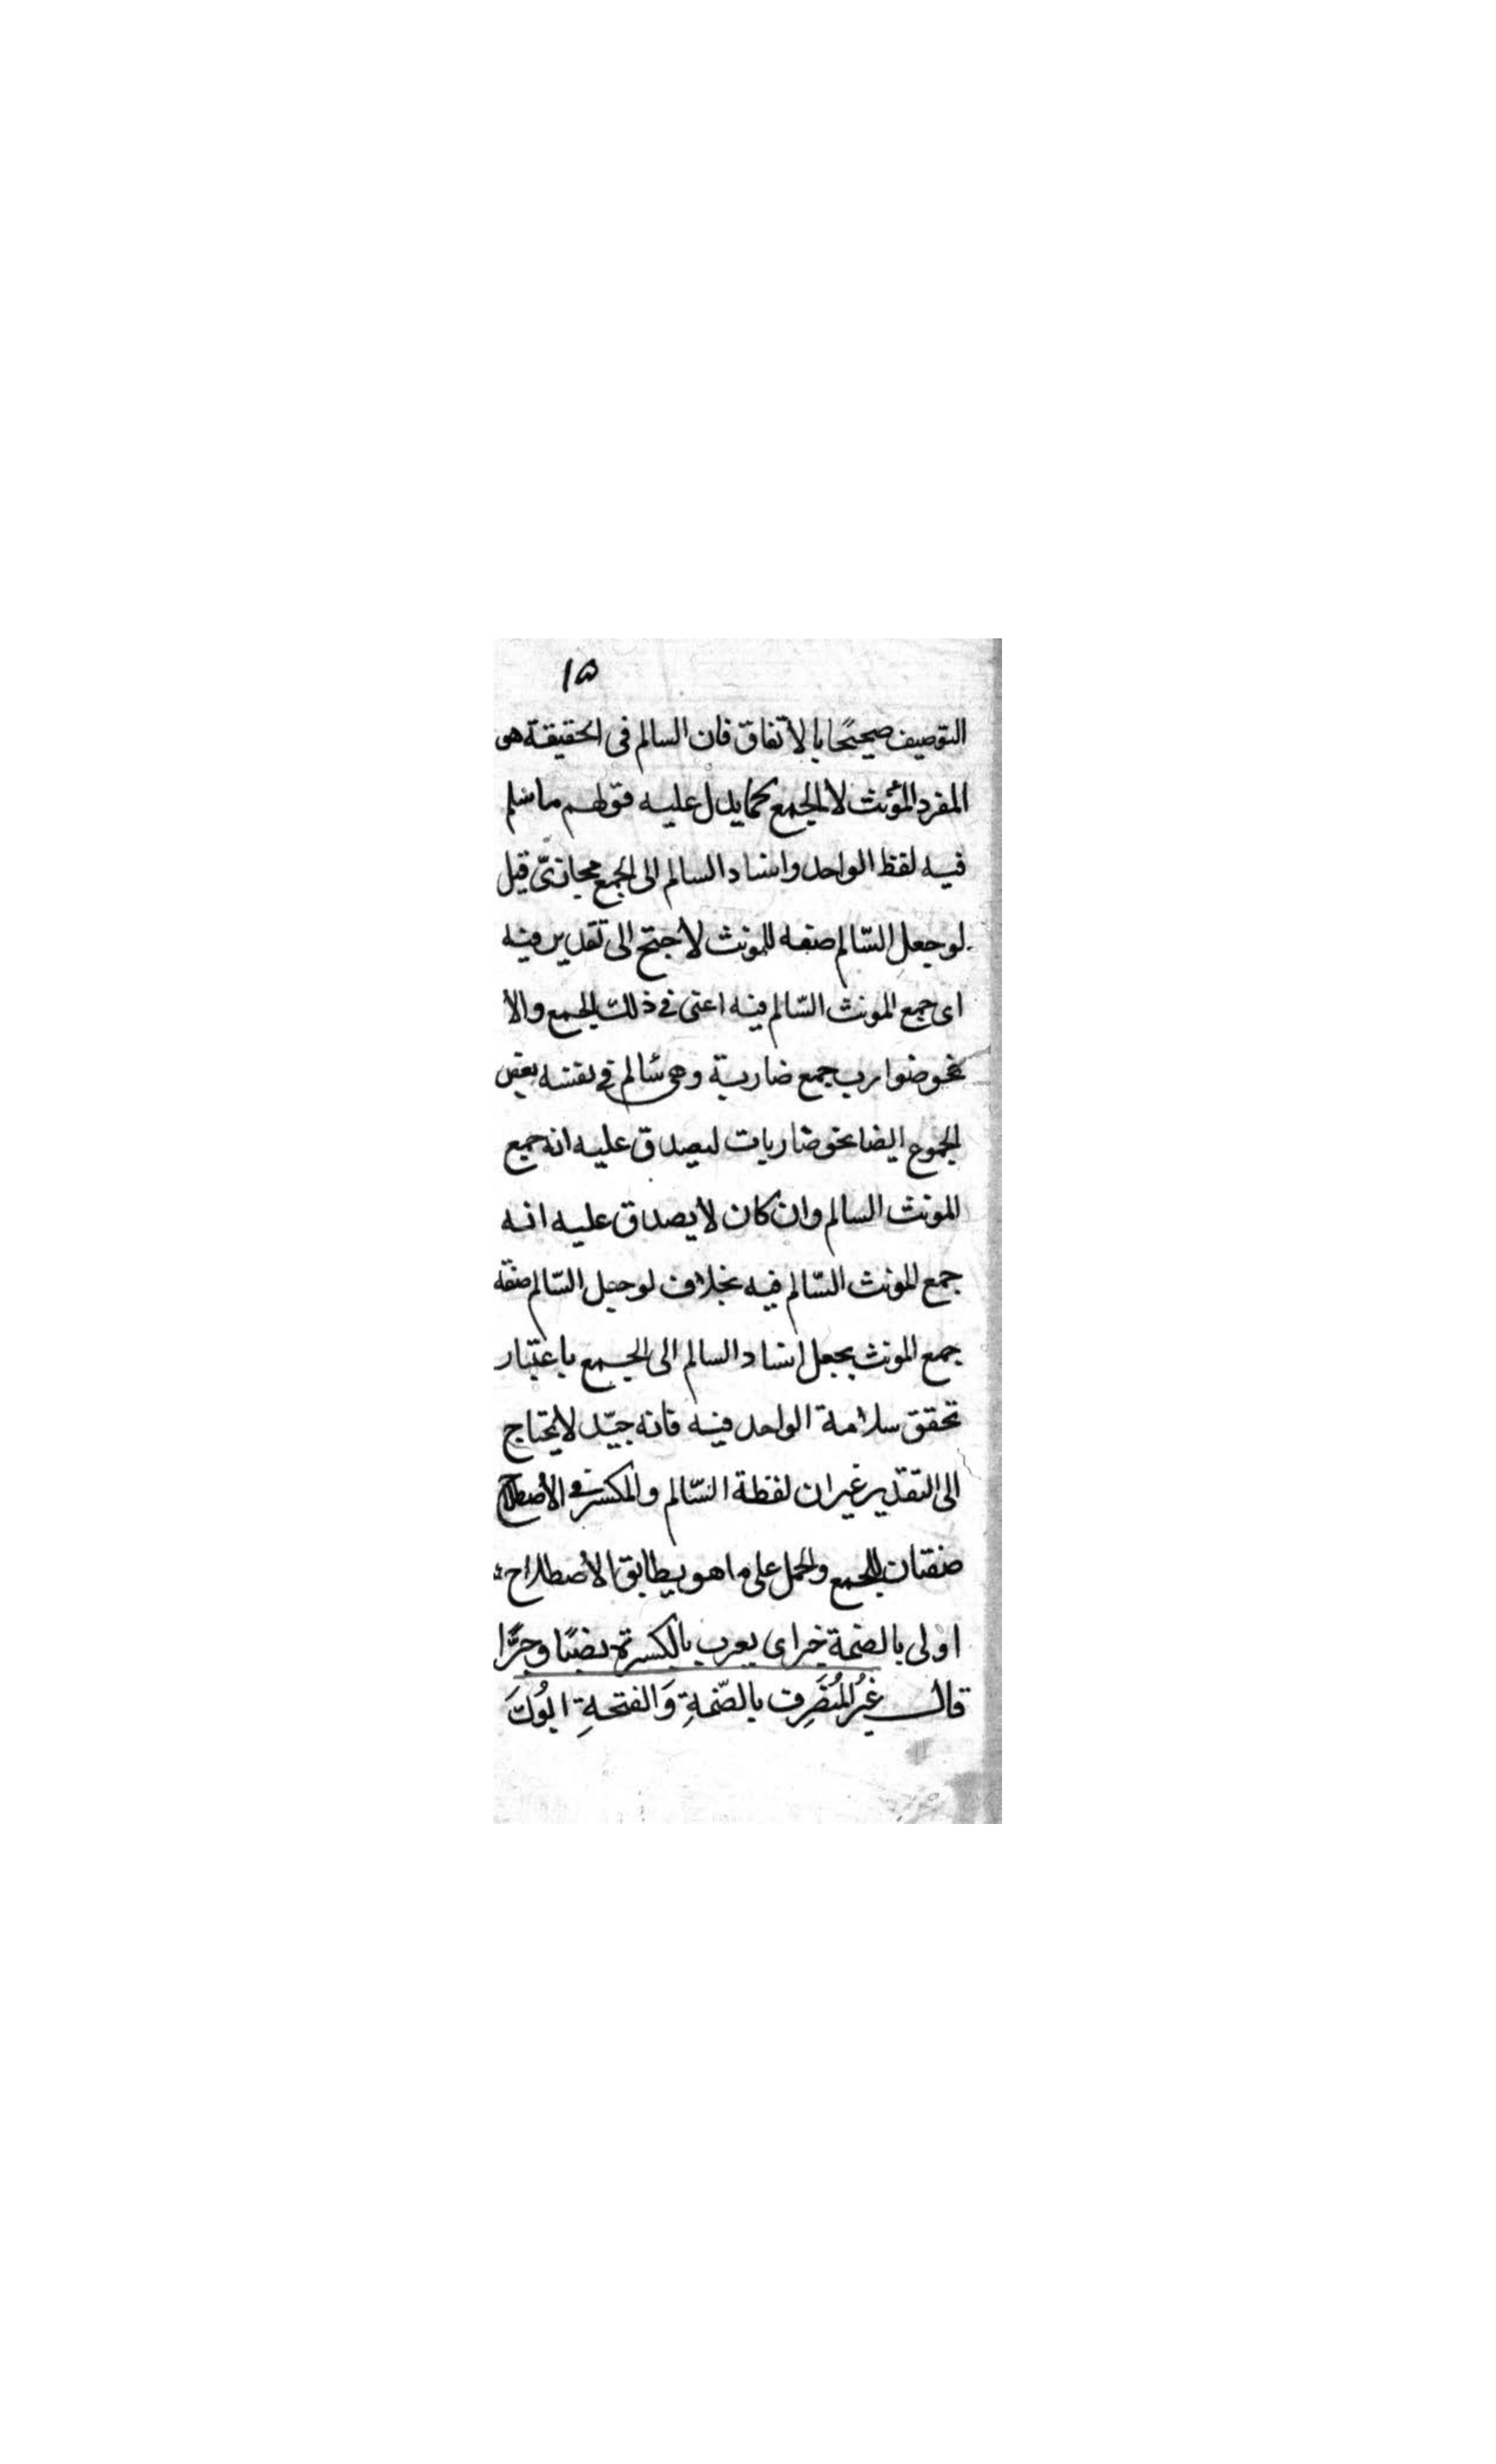 ١٥
التوصيف صحيحًا بالاتفاق فان السالم فى الحقيقة هى
المفرد المؤنث لا الجمع كما يدل عليه قولهم ما سلم
فيه لفظ الواحد واسناد السالم الى الجمع مجازىّ قيل
لو جعل السّالم صفه للمونث لاحتج الى تقدير فيه
اى جمع المونث السّالم فيه اعنى فى ذلك الجمع والا
نحو ضوارب جمع ضاربة وهى سالم فى نفسه
الجموع ايضا نحو ضاربات ليصدق عليه انه جمع
المونث السالم وان كان لا يصدق عليه انه
جمع المونث السّالم فيه بخلاف لو جعل السّالم صفة
جمع المونث بجعل اسناد السالم الى الجمع باعتبار
تحقق سلامة الواحد فيه فانه جيّد لا يحتاج
الى التقدير غير ان لفظة السّالم والمكسر فى الاصطلاح
صفتان للجمع والحمل على ما هو يطابق الاصطلاح
اولى بالضمة خبر اى يعرب بالكسرة نصبًا وجرًّا
قال غيرُ المُنصَرِف بالضّمةِ وَالفتحةِ ابُوكَ